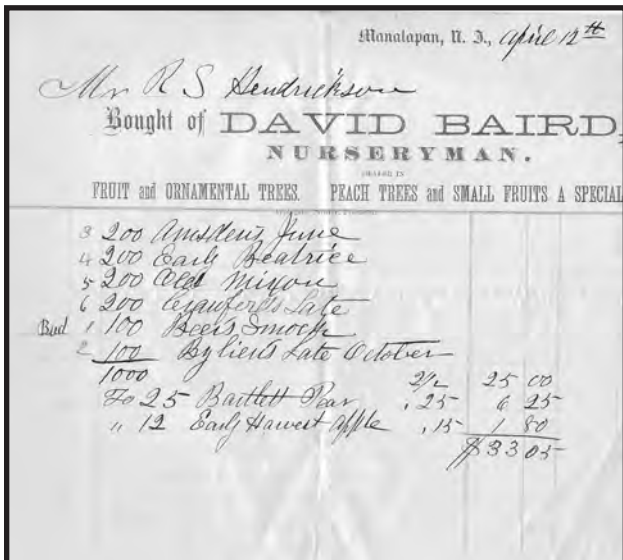 Manalapan, N. J., April 12th
Mr R S Hendrickson
Bought of DAVID BAIRD,
NURSERYMAN.
DEALER IN
FRUIT and ORNAMENTAL TREES. PEACH TREES and SMALL FRUITS A SPECIAL
3 200 Amsden's June
4 200 Early Beatrice
5 200 Old Mixon
6 200 Crawfords Late
Bud 1 100 Beers Smock
2 100 Late October
1000 2½ 25 00
To 25 Bartlett Pear .25 6 25
" 12 Early Harvest apple .15 1 80
$33 05